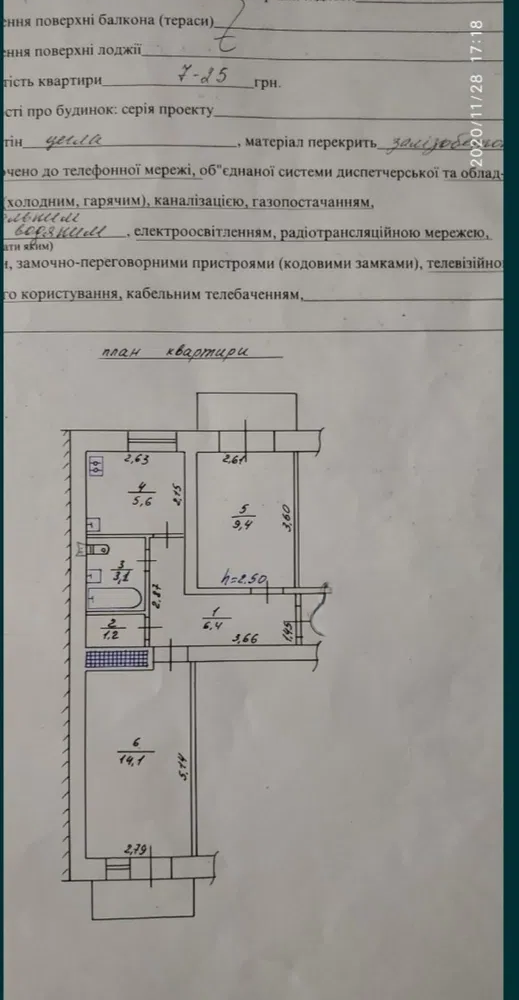 ення поверхні балкона (тераси)
ення поверхні лоджії
тість квартири 7-25 грн.
сті про будинок: серія проекту
тін цегла, матеріал перекрить залізобетон
чено до телефонної мережі, об"єднаної системи диспетчерської та облад-
(холодним, гарячим), каналізацією, газопостачанням,
водяним, електроосвітленням, радіотрансляційною мережею,
ати яким)
и, замочно-переговорними пристроями (кодовими замками), телевізійно
го користування, кабельним телебаченням,
план квартири
2,63
2,61
4
5,6
2,15
5
9,4
3,60
3
3,1
h=2.50
2,87
2
1.2
1
6.4
1,45
3,66
6
14,1
5,14
2,79
2020/11/28 17:18